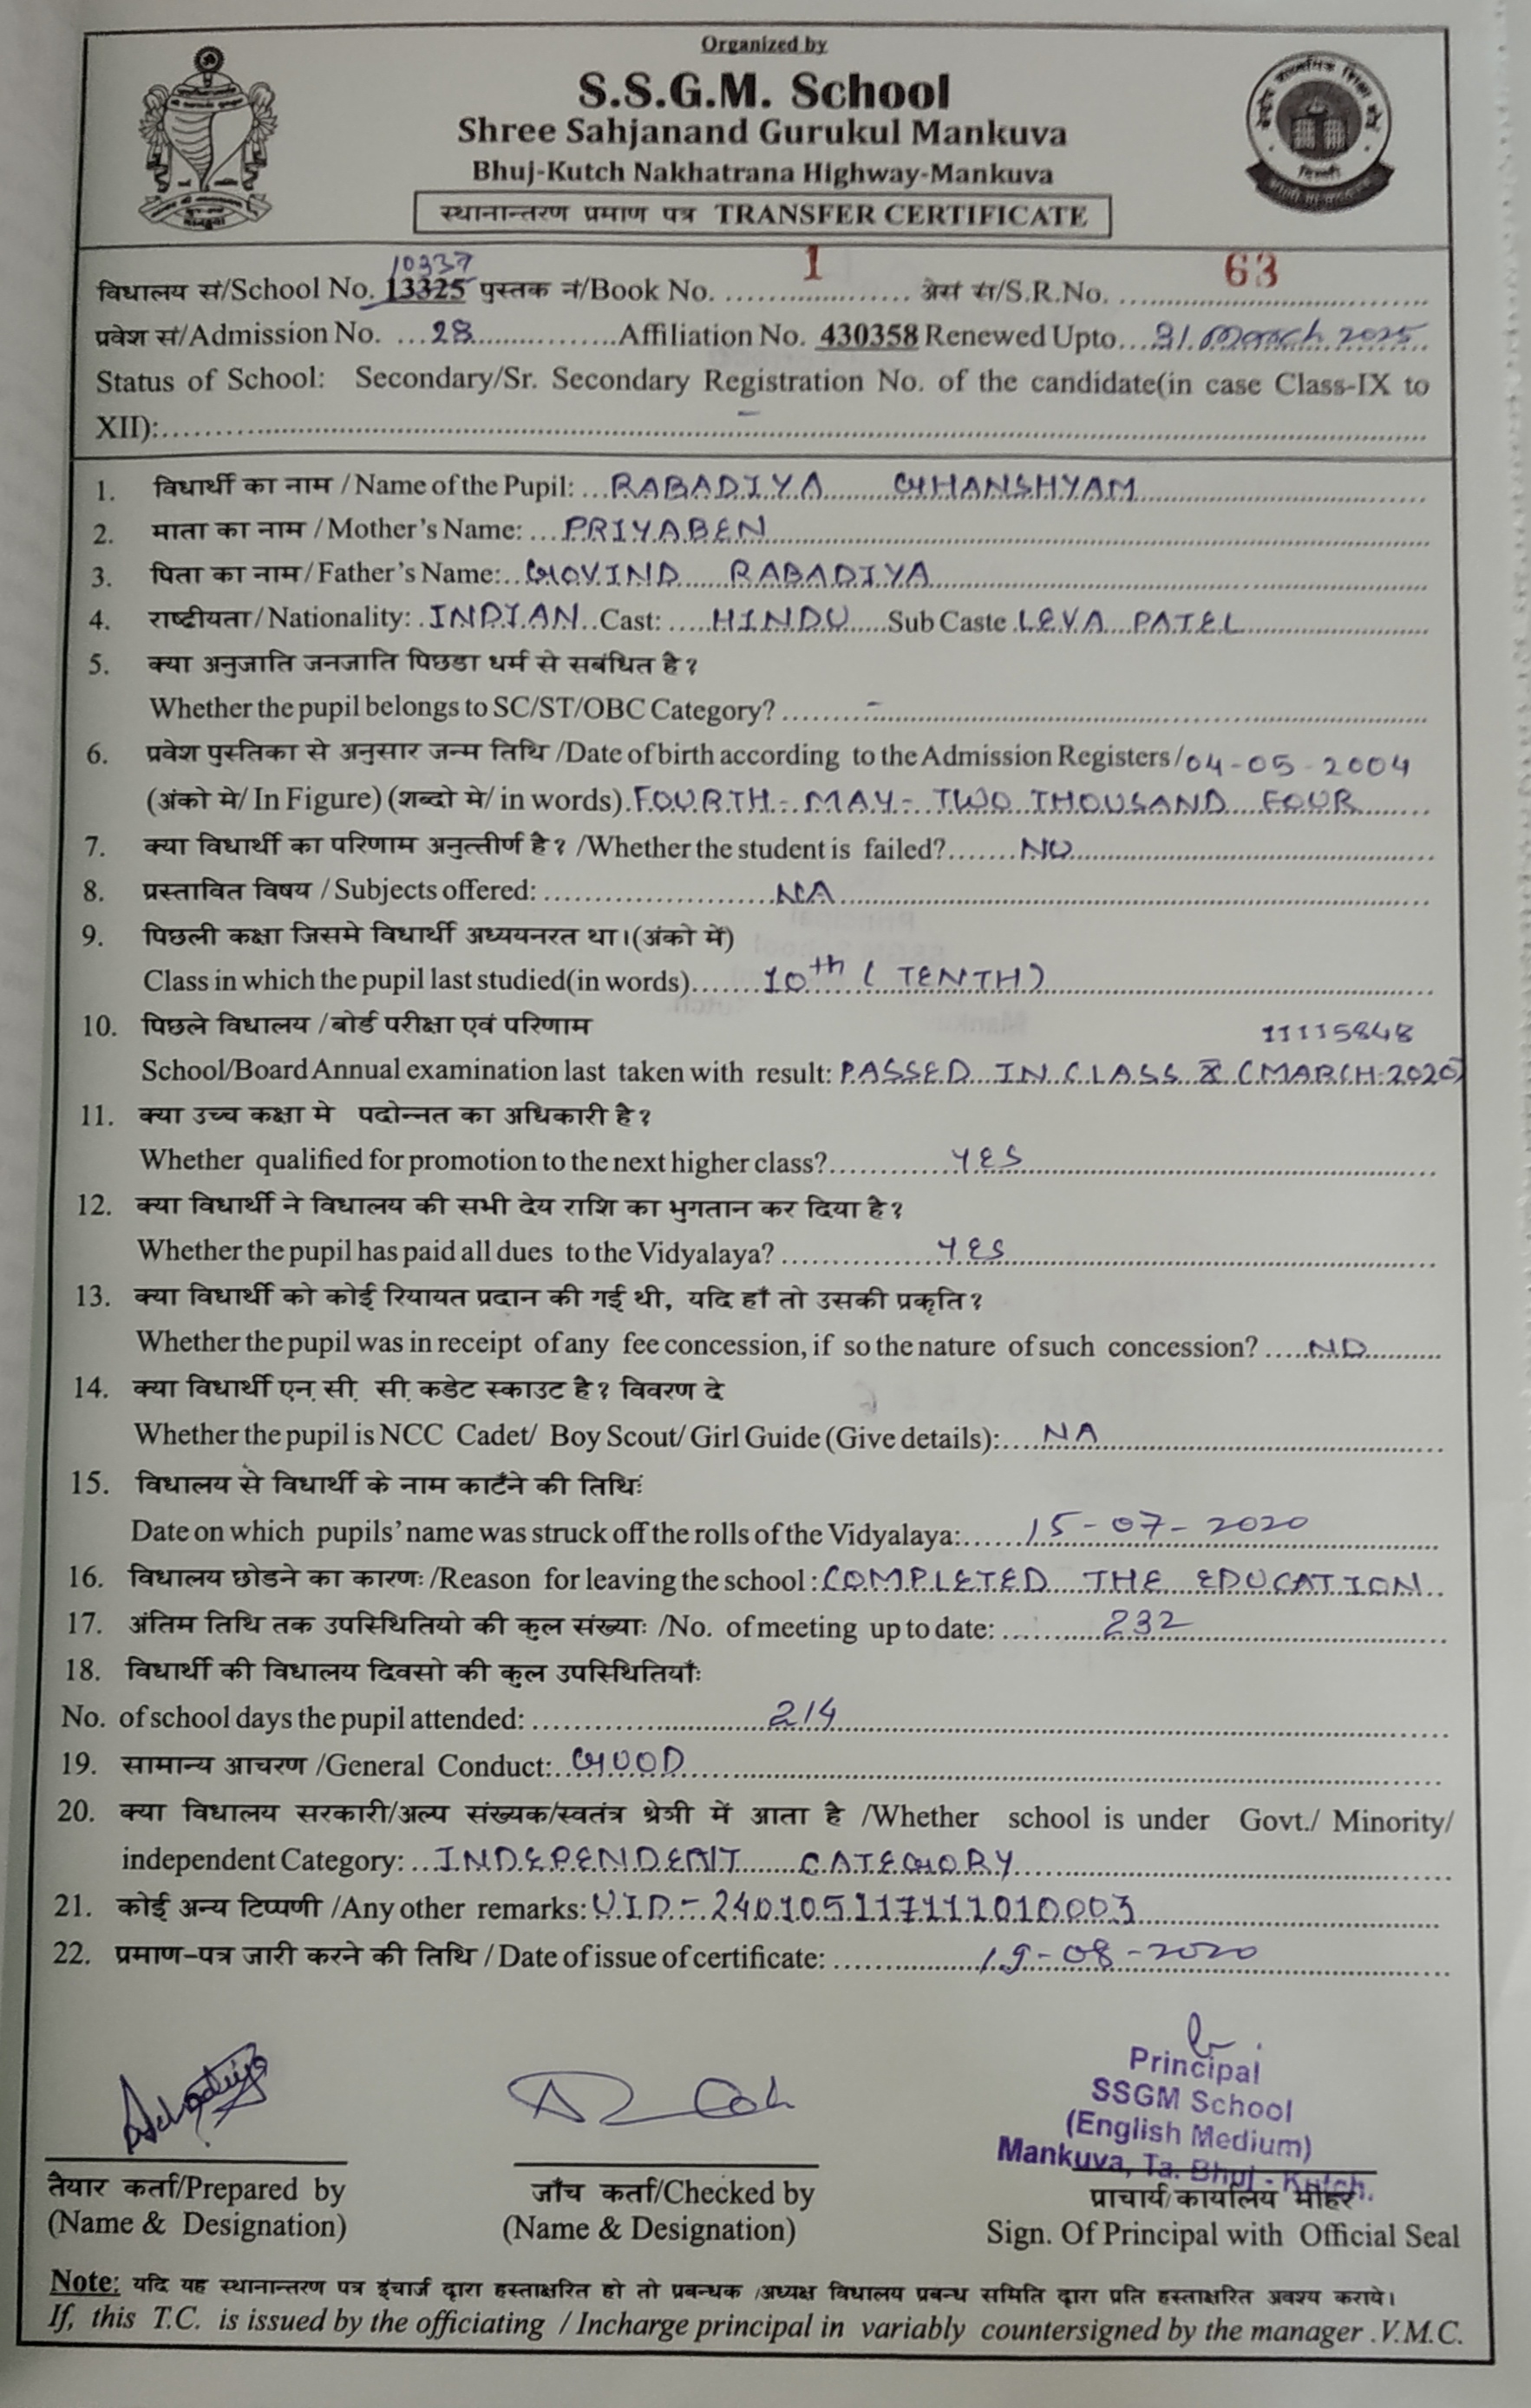 Organized by
S.S.G.M. School
Shree Sahjanand Gurukul Mankuva
Bhuj-Kutch Nakhatrana Highway-Mankuva
स्थानान्तरण प्रमाण पत्र TRANSFER CERTIFICATE
10337 1 63
विधालय सं/School No. 13325 पुस्तक नं/Book No. .................... S.R.No. ....................
प्रवेश सं/Admission No. ...28.................Affiliation No. 430358 Renewed Upto...31.March.2025
Status of School: Secondary/Sr. Secondary Registration No. of the candidate(in case Class-IX to
XII):.......... – ..........
1. विधार्थी का नाम / Name of the Pupil: ...RABADIYA GHANSHYAM
2. माता का नाम / Mother's Name: ...PRIYABEN
3. पिता का नाम/ Father's Name:..GOVIND RABADIYA
4. राष्टीयता / Nationality: .INDIAN..Cast: .....HINDU.....Sub Caste LEVA PATEL
5. क्या अनुजाति जनजाति पिछडा धर्म से सबंधित है?
Whether the pupil belongs to SC/ST/OBC Category? .......... –
6. प्रवेश पुस्तिका से अनुसार जन्म तिथि /Date of birth according to the Admission Registers/04-05-2004
(अंको मे/ In Figure) (शब्दो मे/ in words).FOURTH - MAY - TWO THOUSAND FOUR
7. क्या विधार्थी का परिणाम अनुत्तीर्ण है? /Whether the student is failed?.......NO
8. प्रस्तावित विषय / Subjects offered: ....................NA
9. पिछली कक्षा जिसमे विधार्थी अध्ययनरत था।(अंको में)
Class in which the pupil last studied(in words).......10th (TENTH)
10. पिछले विधालय /बोर्ड परीक्षा एवं परिणाम 11115848
School/Board Annual examination last taken with result: PASSED IN CLASS X (MARCH-2020)
11. क्या उच्च कक्षा मे पदोन्नत का अधिकारी है?
Whether qualified for promotion to the next higher class?............YES
12. क्या विधार्थी ने विधालय की सभी देय राशि का भुगतान कर दिया है?
Whether the pupil has paid all dues to the Vidyalaya? ................YES
13. क्या विधार्थी को कोई रियायत प्रदान की गई थी, यदि हाँ तो उसकी प्रकृति?
Whether the pupil was in receipt of any fee concession, if so the nature of such concession? .....NO
14. क्या विधार्थी एन.सी. सी. कडेट स्काउट है? विवरण दे
Whether the pupil is NCC Cadet/ Boy Scout/ Girl Guide (Give details):....NA
15. विधालय से विधार्थी के नाम काटँने की तिथिः
Date on which pupils' name was struck off the rolls of the Vidyalaya:......15-07-2020
16. विधालय छोडने का कारणः /Reason for leaving the school : COMPLETED THE EDUCATION
17. अंतिम तिथि तक उपस्थितियो की कुल संख्याः /No. of meeting up to date: ..........232
18. विधार्थी की विधालय दिवसो की कुल उपस्थितियाँः
No. of school days the pupil attended: ....................214
19. सामान्य आचरण /General Conduct:..GOOD
20. क्या विधालय सरकारी/अल्प संख्यक/स्वतंत्र श्रेत्री में आता है /Whether school is under Govt./ Minority/
independent Category: ...INDEPENDENT CATEGORY
21. कोई अन्य टिप्पणी /Any other remarks: UID - 240105117111010003
22. प्रमाण-पत्र जारी करने की तिथि / Date of issue of certificate: ...............19-08-2020
Principal
SSGM School
(English Medium)
Mankuva, Ta. Bhuj - Kutch.
तैयार कर्ता/Prepared by जाँच कर्ता/Checked by प्राचार्य/कार्यालय मोहर
(Name & Designation) (Name & Designation) Sign. Of Principal with Official Seal
Note: यदि यह स्थानान्तरण पत्र इंचार्ज द्वारा हस्ताक्षरित हो तो प्रबन्धक /अध्यक्ष विधालय प्रबन्ध समिति द्वारा प्रति हस्ताक्षरित अवश्य कराये।
If, this T.C. is issued by the officiating / Incharge principal in variably countersigned by the manager .V.M.C.